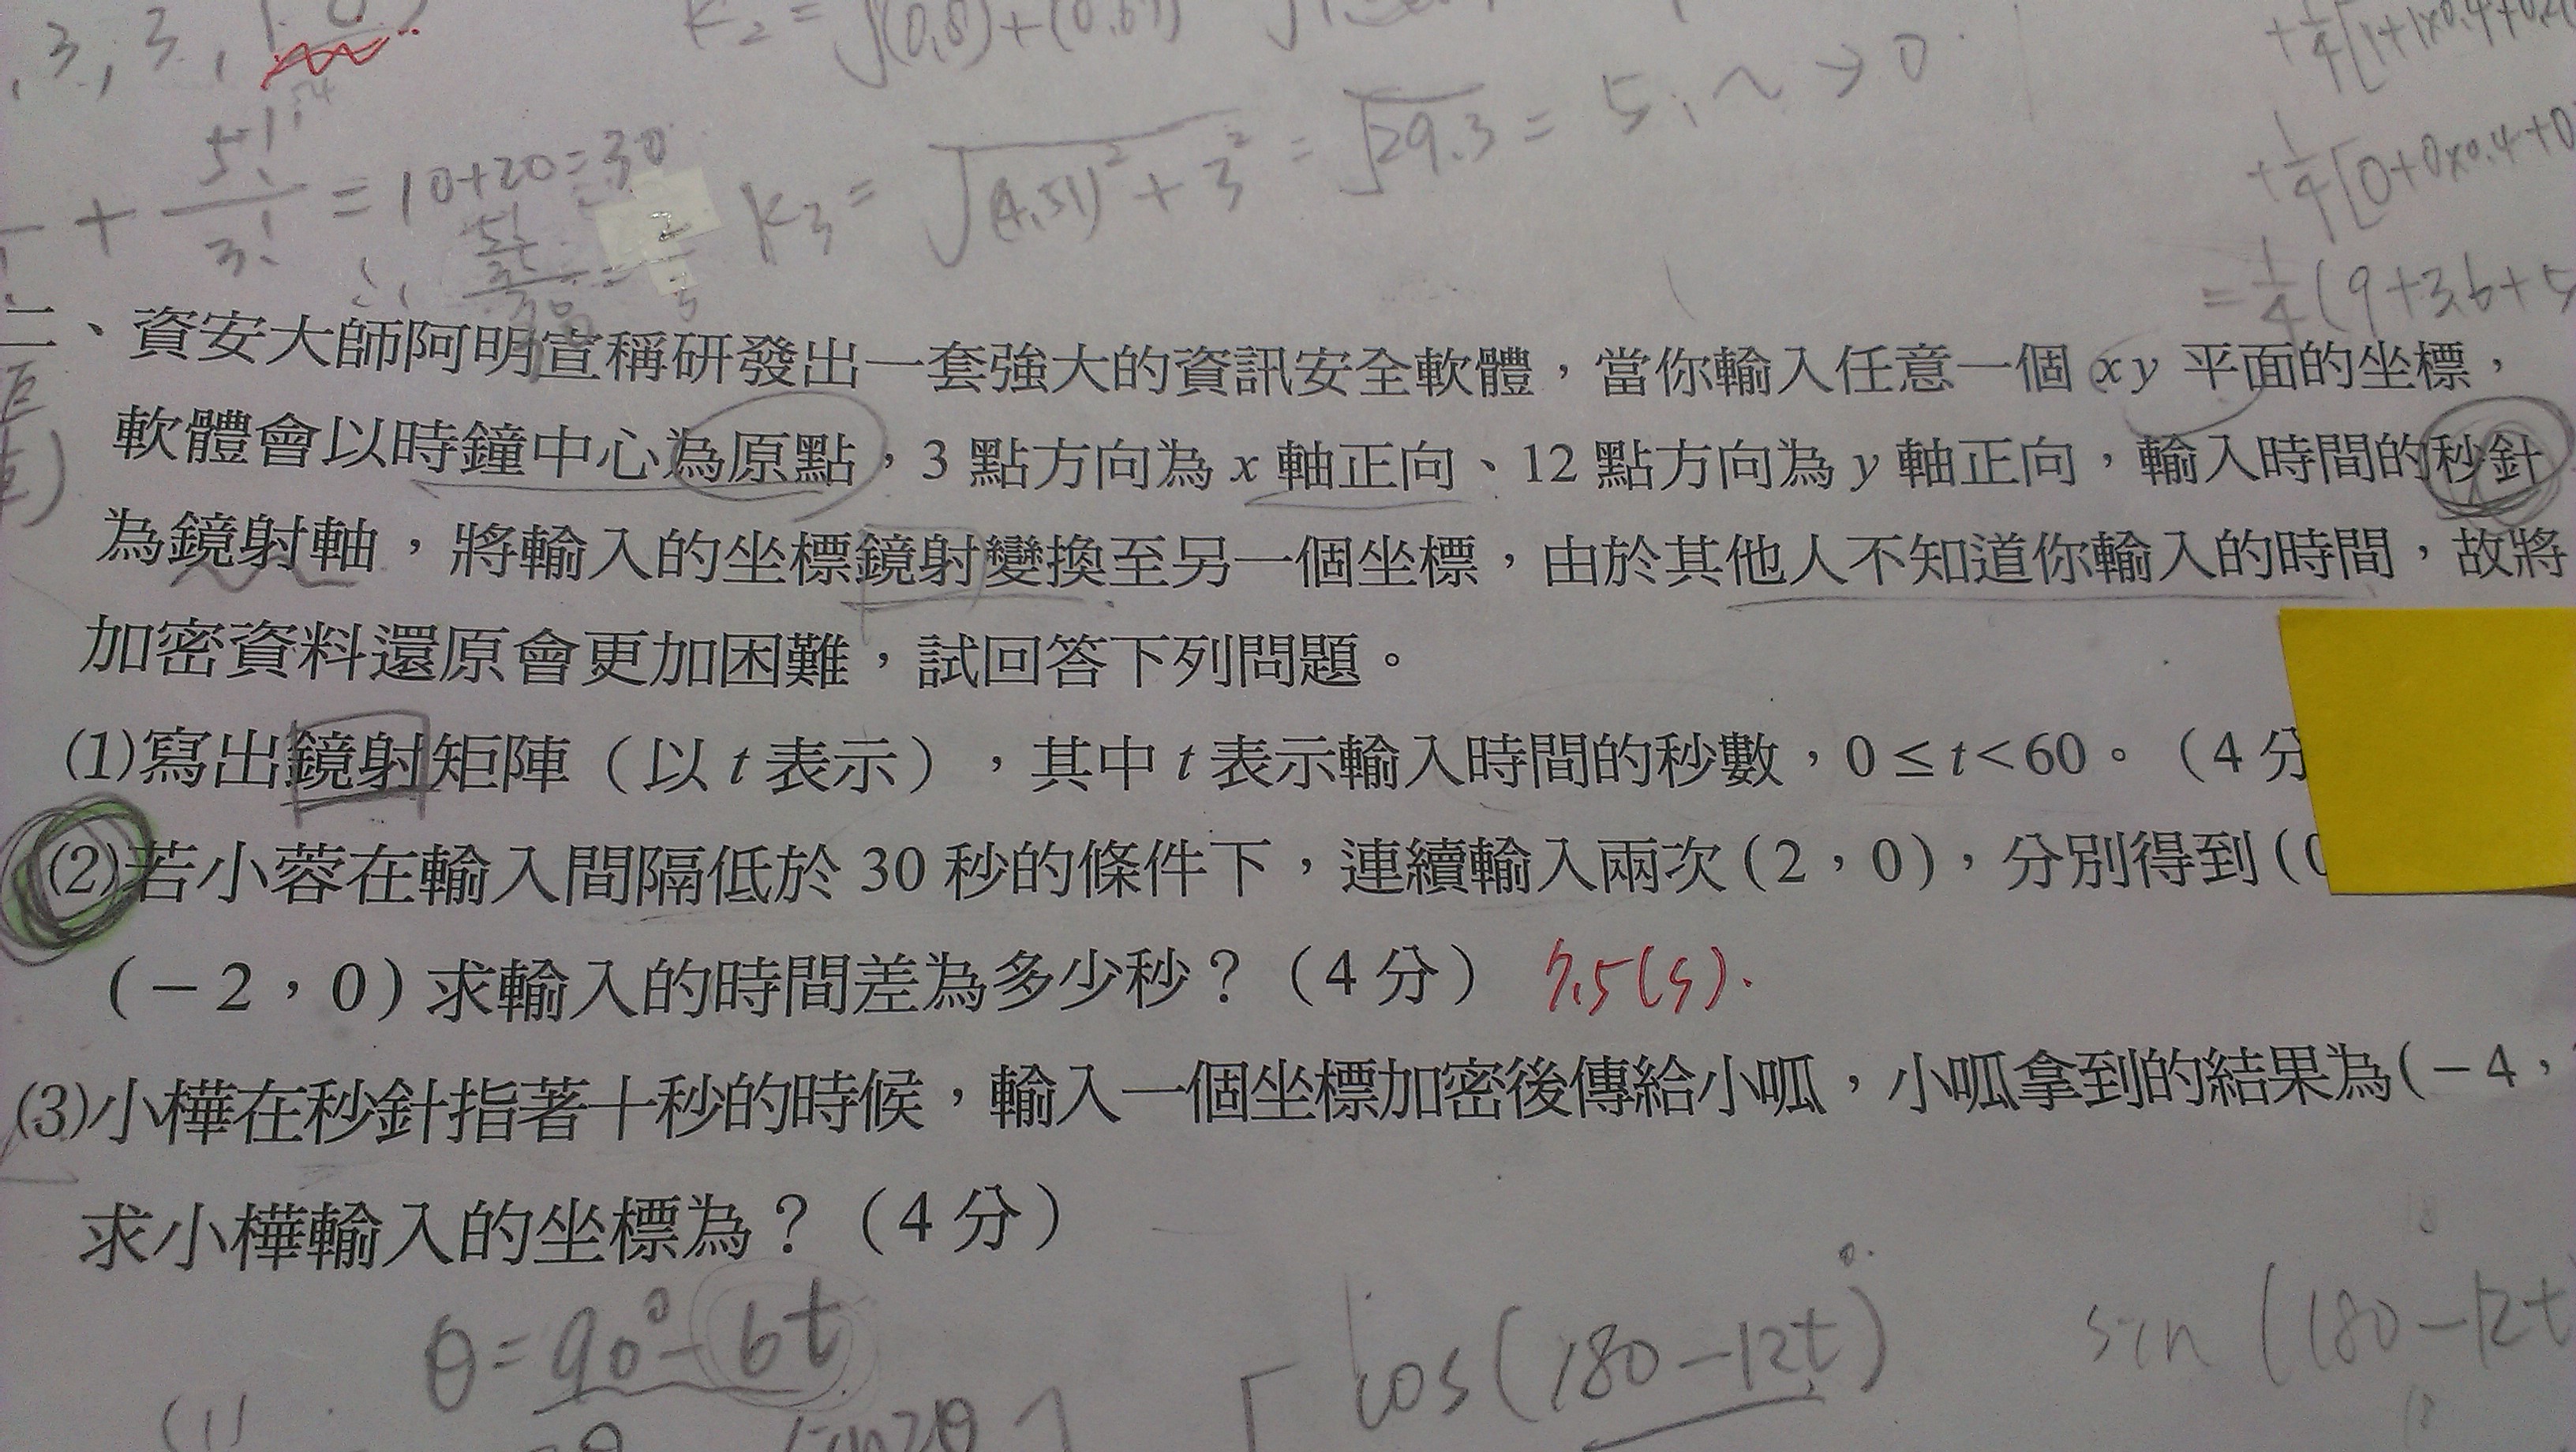 , 3, 3, 1
K₂ = √(0.8)+(0.6
+ 1/4[1+1×0.4+0.
+ 5!/3! = 10+20=30
K₃ = √(4.51)²+3² = √29.3 = 5.
→ 0
+ 1/4[0+0×0.4+0
= 1/4(9+3.6+5
二、資安大師阿明宣稱研發出一套強大的資訊安全軟體，當你輸入任意一個 xy 平面的坐標，
軟體會以時鐘中心為原點，3 點方向為 x 軸正向、12 點方向為 y 軸正向，輸入時間的秒針
為鏡射軸，將輸入的坐標鏡射變換至另一個坐標，由於其他人不知道你輸入的時間，故將
加密資料還原會更加困難，試回答下列問題。
(1)寫出鏡射矩陣（以 t 表示），其中 t 表示輸入時間的秒數，0≤t<60。（4 分
(2)若小蓉在輸入間隔低於 30 秒的條件下，連續輸入兩次(2，0)，分別得到(
(－2，0)求輸入的時間差為多少秒？（4 分） 7.5(s).
(3)小樺在秒針指著十秒的時候，輸入一個坐標加密後傳給小呱，小呱拿到的結果為(－4，
求小樺輸入的坐標為？（4 分）
θ=90°-6t
cos(180-12t)° sin(180-12t
(1) sin2θ